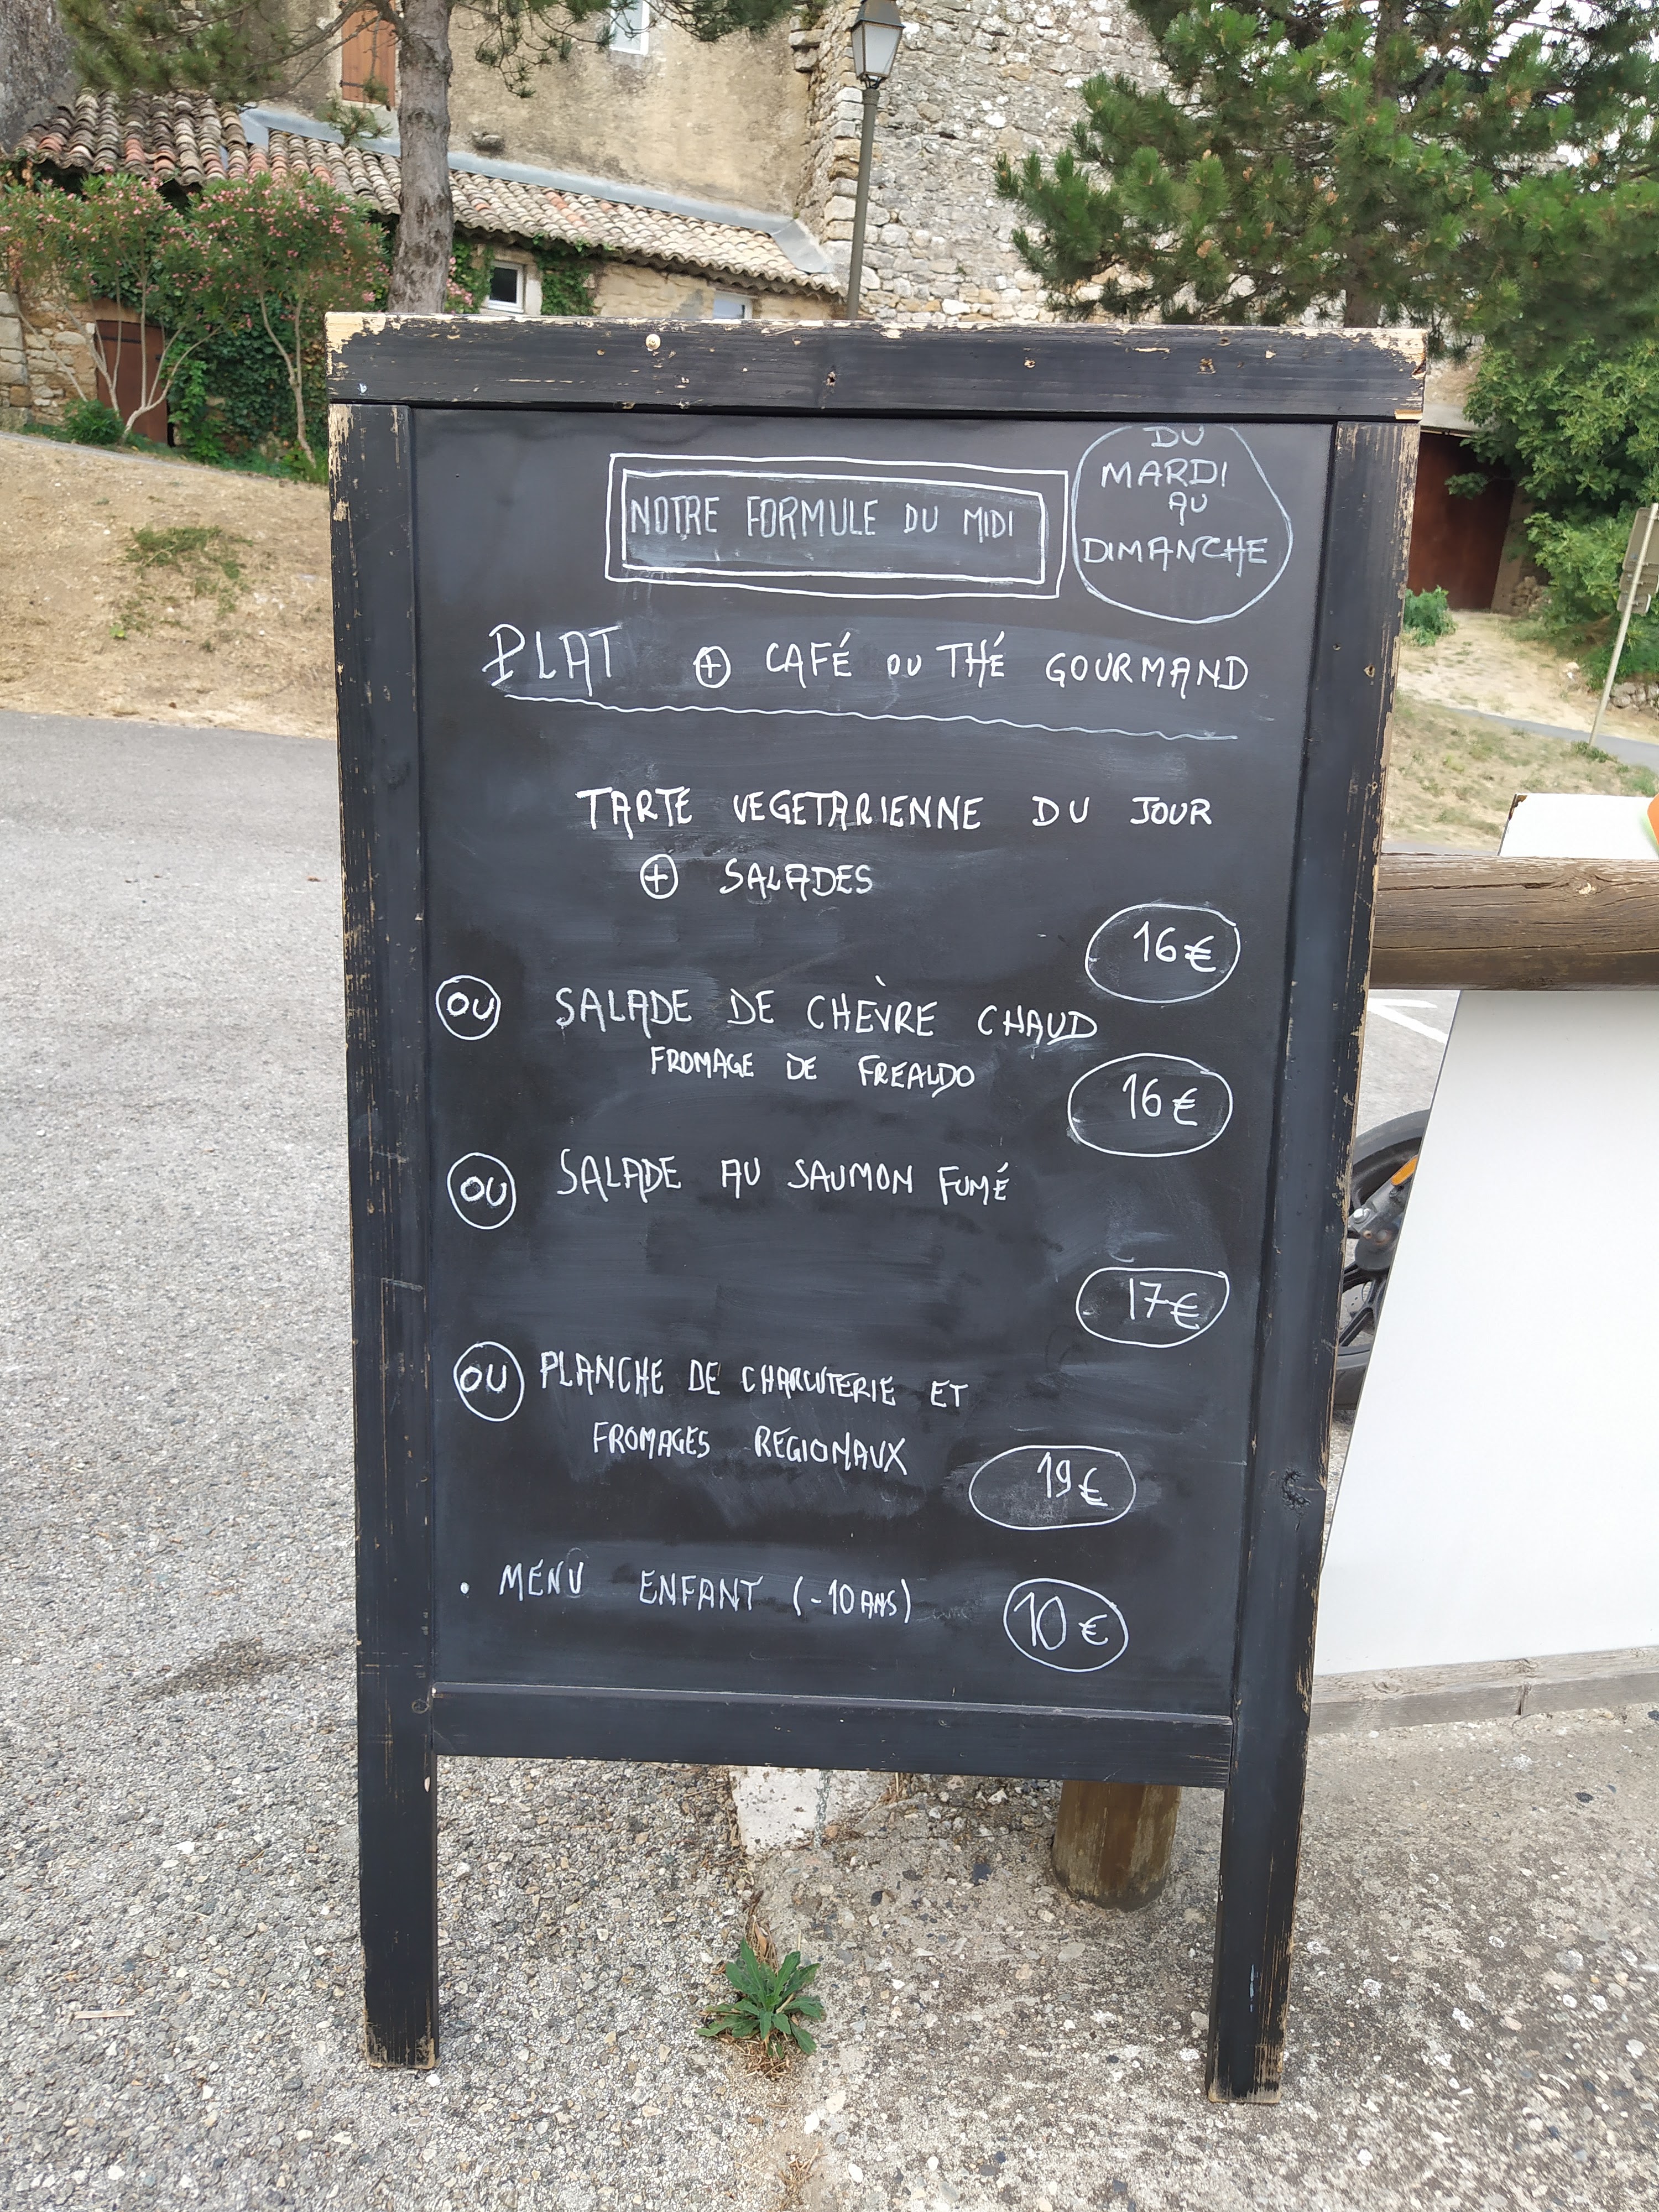 NOTRE FORMULE DU MIDI
DU
MARDI
AU
DIMANCHE
PLAT + CAFÉ OU THÉ GOURMAND
TARTE VEGETARIENNE DU JOUR
+ SALADES
16€
OU SALADE DE CHÈVRE CHAUD
FROMAGE DE FREALDO
16€
OU SALADE AU SAUMON FUMÉ
17€
OU PLANCHE DE CHARCUTERIE ET
FROMAGES REGIONAUX
19€
. MENU ENFANT (-10 ANS) 10€